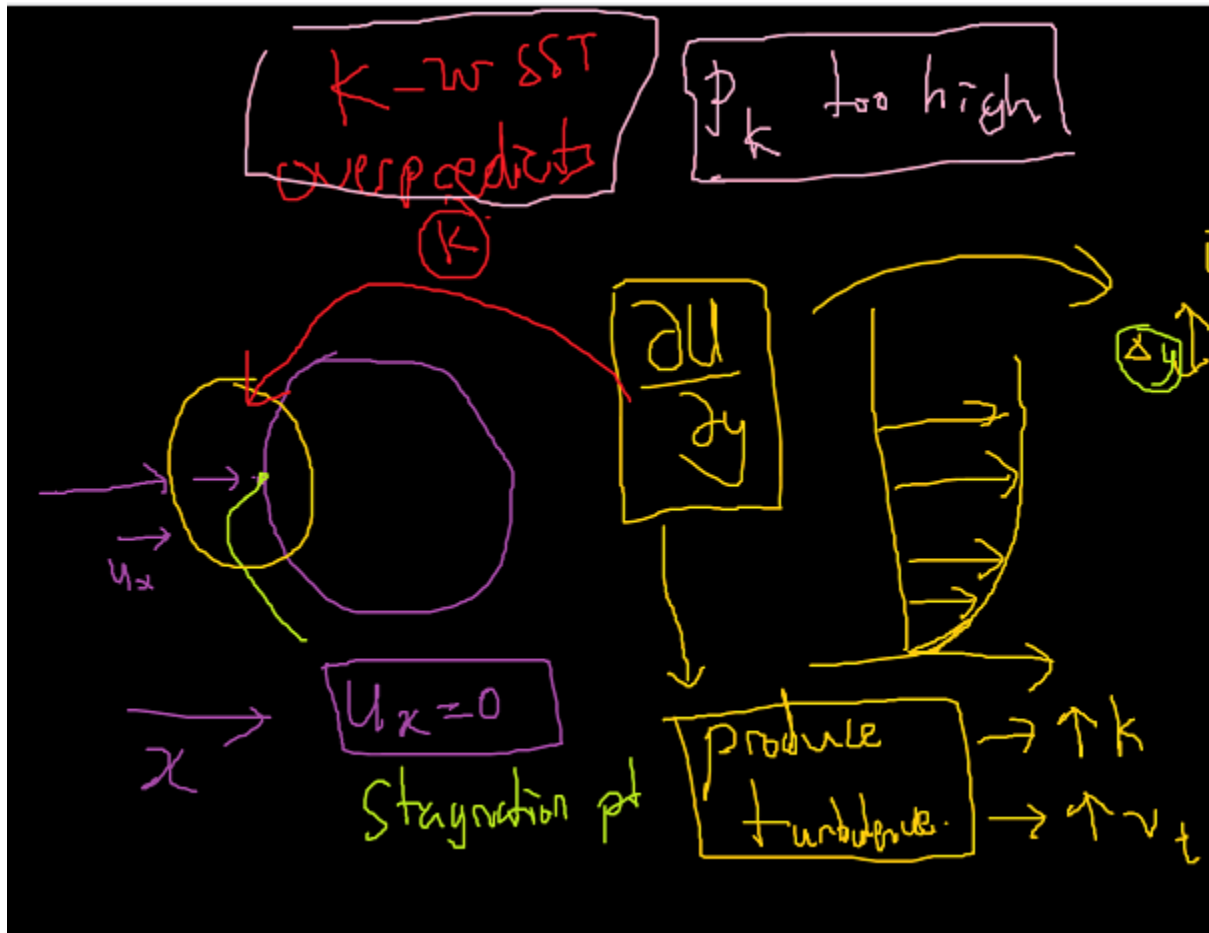 K-w SST
overpredicts
K
P_k too high
∂U
∂y
Δy
u_x
x
u_x=0
Stagnation pt
produce
turbulence.
→ ↑ k
→ ↑ ν_t